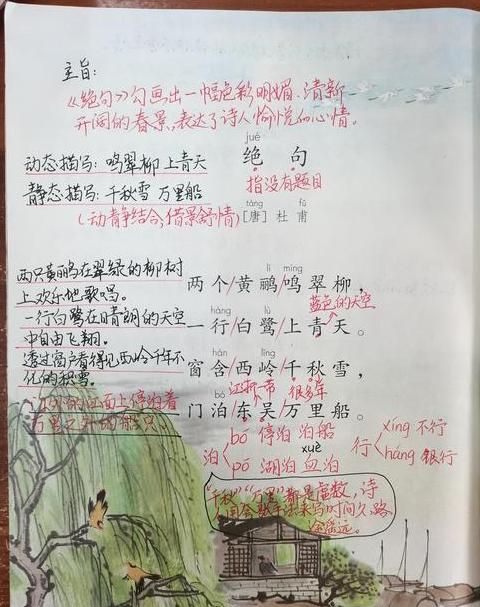 主旨:
《绝句》勾画出一幅色彩明媚、清新
开阔的春景,表达了诗人愉悦的心情。
动态描写:鸣翠柳 上青天
静态描写:千秋雪 万里船
(动静结合,借景舒情)
jué
绝 句
指没有题目
táng fǔ
[唐] 杜 甫
lí míng
两个/黄鹂/鸣翠柳,
蓝色的天空
háng lù
一行/白鹭/上青天。
hán lǐng
窗含/西岭/千秋雪,
江浙一带 很多年
bó
门泊/东吴/万里船。
两只黄鹂在翠绿的柳树
上欢乐地歌唱。
一行白鹭在晴朗的天空
中自由飞翔。
透过窗户看得见西岭千年不
化的积雪。
门外的江面上停泊着
万里之外的船只。
泊
bó 停泊 泊船
xuè
pō 湖泊 血泊
行
xíng 不行
háng 银行
"千秋""万里"都是虚数,诗